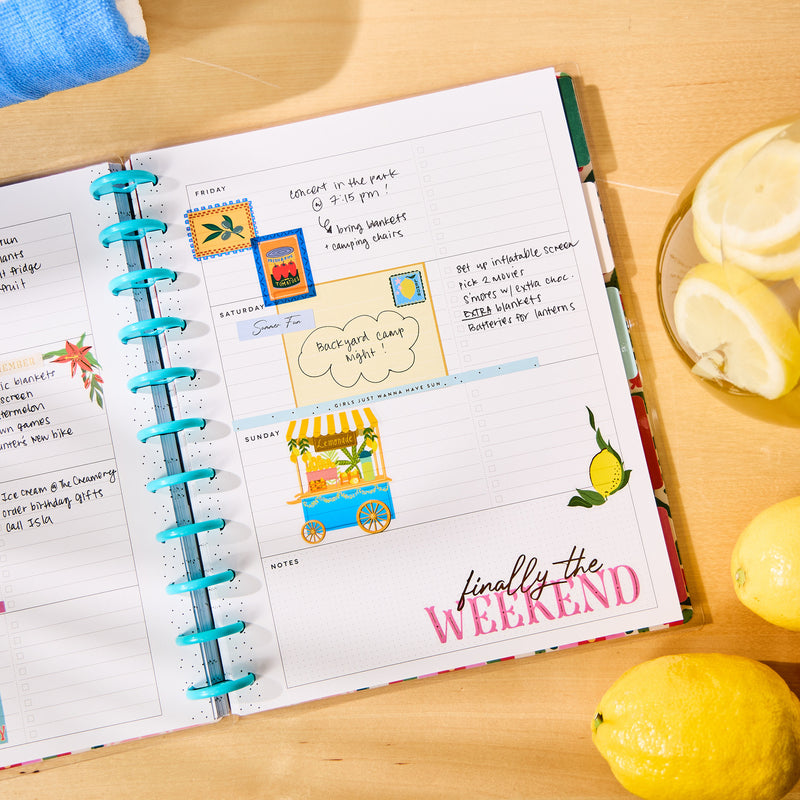 run
lants
t fridge
ruit
EMBER
ic blankets
screen
termelon
wn games
unter's new bike
Ice cream @ The Creamery
order birthday gifts
call Isla
FRIDAY
concert in the park
@ 7:15 pm!
bring blankets
+ camping chairs
TOMATOES
SATURDAY
Summer Fun
Backyard camp
night!
set up inflatable screen
pick 2 movies
s'mores w/ extra choc.
EXTRA blankets
Batteries for lanterns
GIRLS JUST WANNA HAVE SUN
SUNDAY
Lemonade
NOTES
finally the
WEEKEND